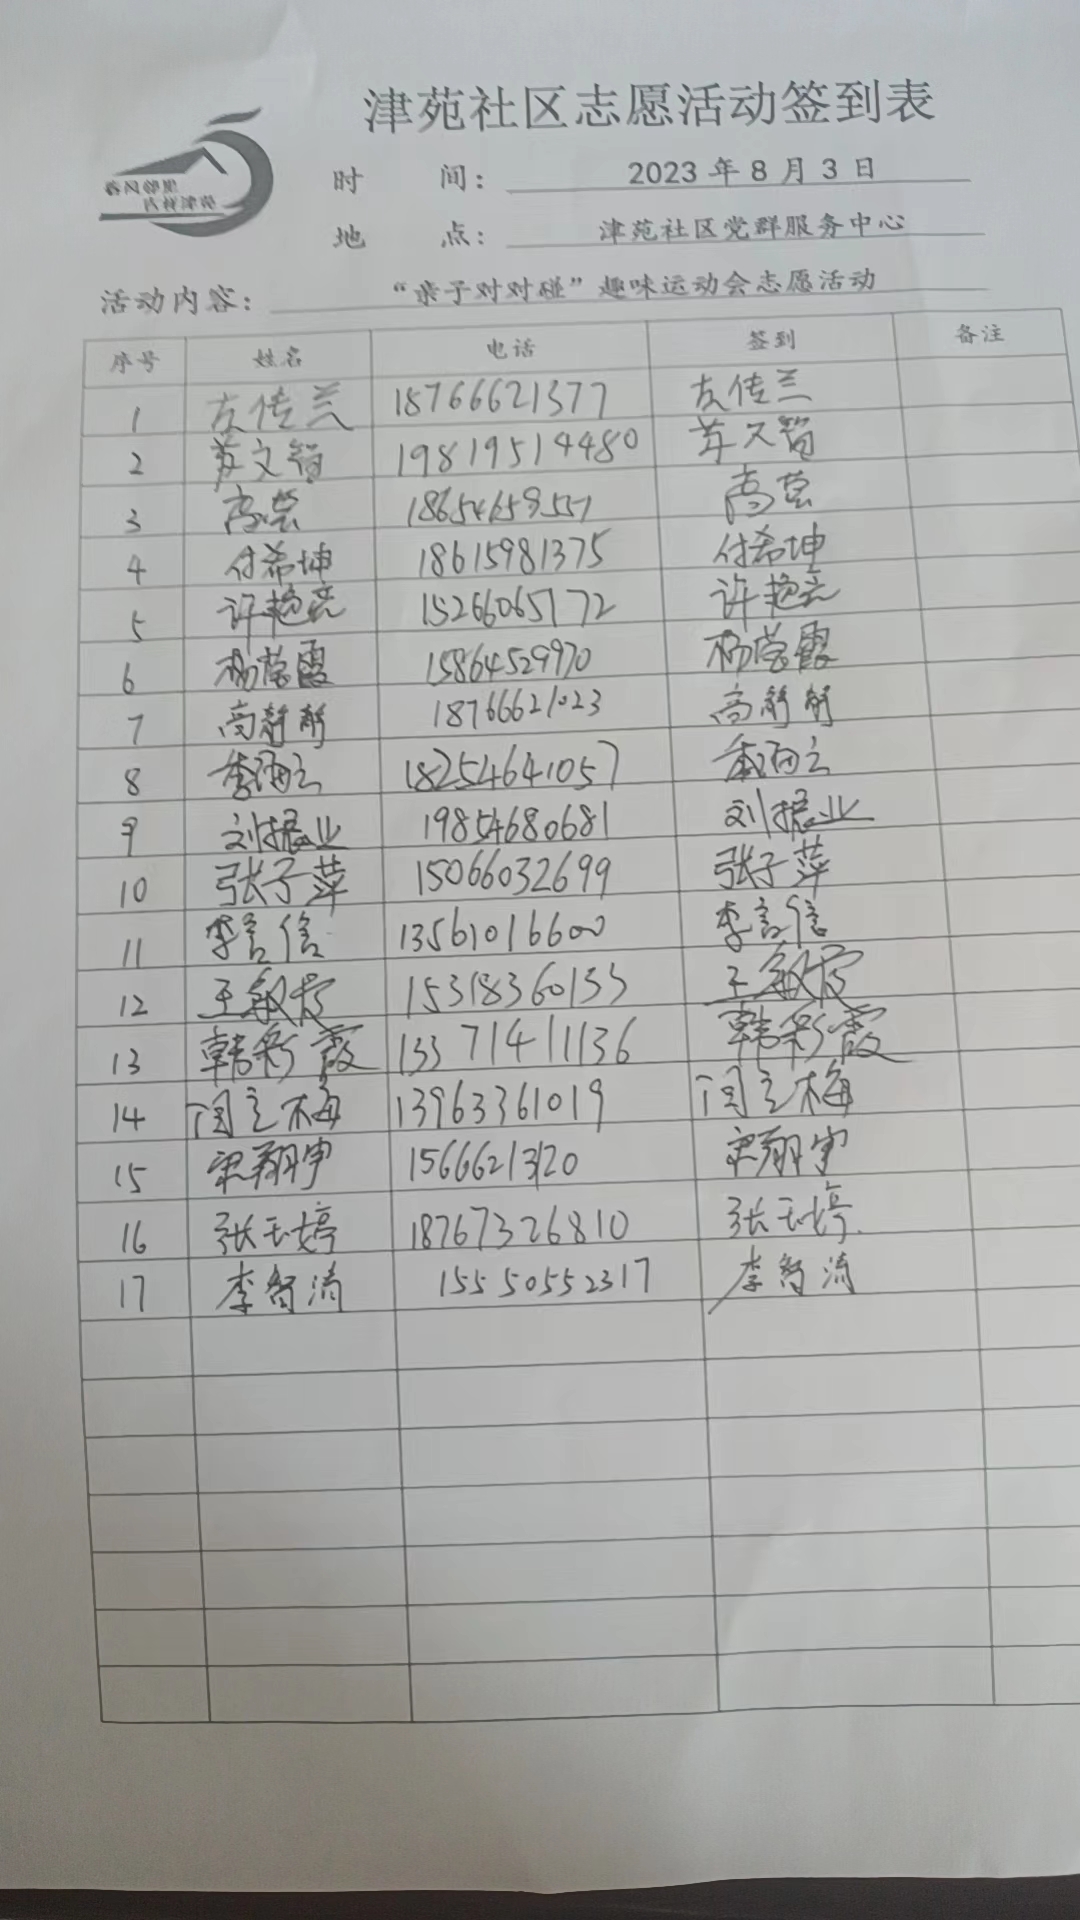 津苑社区志愿活动签到表
时 间： 2023 年 8 月 3 日
地 点： 津苑社区党群服务中心
活动内容： “亲子对对碰”趣味运动会志愿活动
序号 姓名 电话 签到 备注
1 左传兰 18766621377 左传兰
2 苏文智 19819514480 苏文智
3 高芸 高芸
4 付希坤 18615981375 付希坤
5 许艳亮 15266065172 许艳亮
6 杨莹霞 15864529970 杨莹霞
7 高静静 18766621023 高静静
8 18254641057
9 刘振业 19854680681 刘振业
10 张子萍 15066032699 张子萍
11 李言信 13561016600 李言信
12 王敏霞 15318360133 王敏霞
13 韩彩霞 13371411136 韩彩霞
14 闫立梅 13963361019 闫立梅
15 宋翔宇 15666213120 宋翔宇
16 张玉婷 18767326810 张玉婷
17 李智清 15550552317 李智清